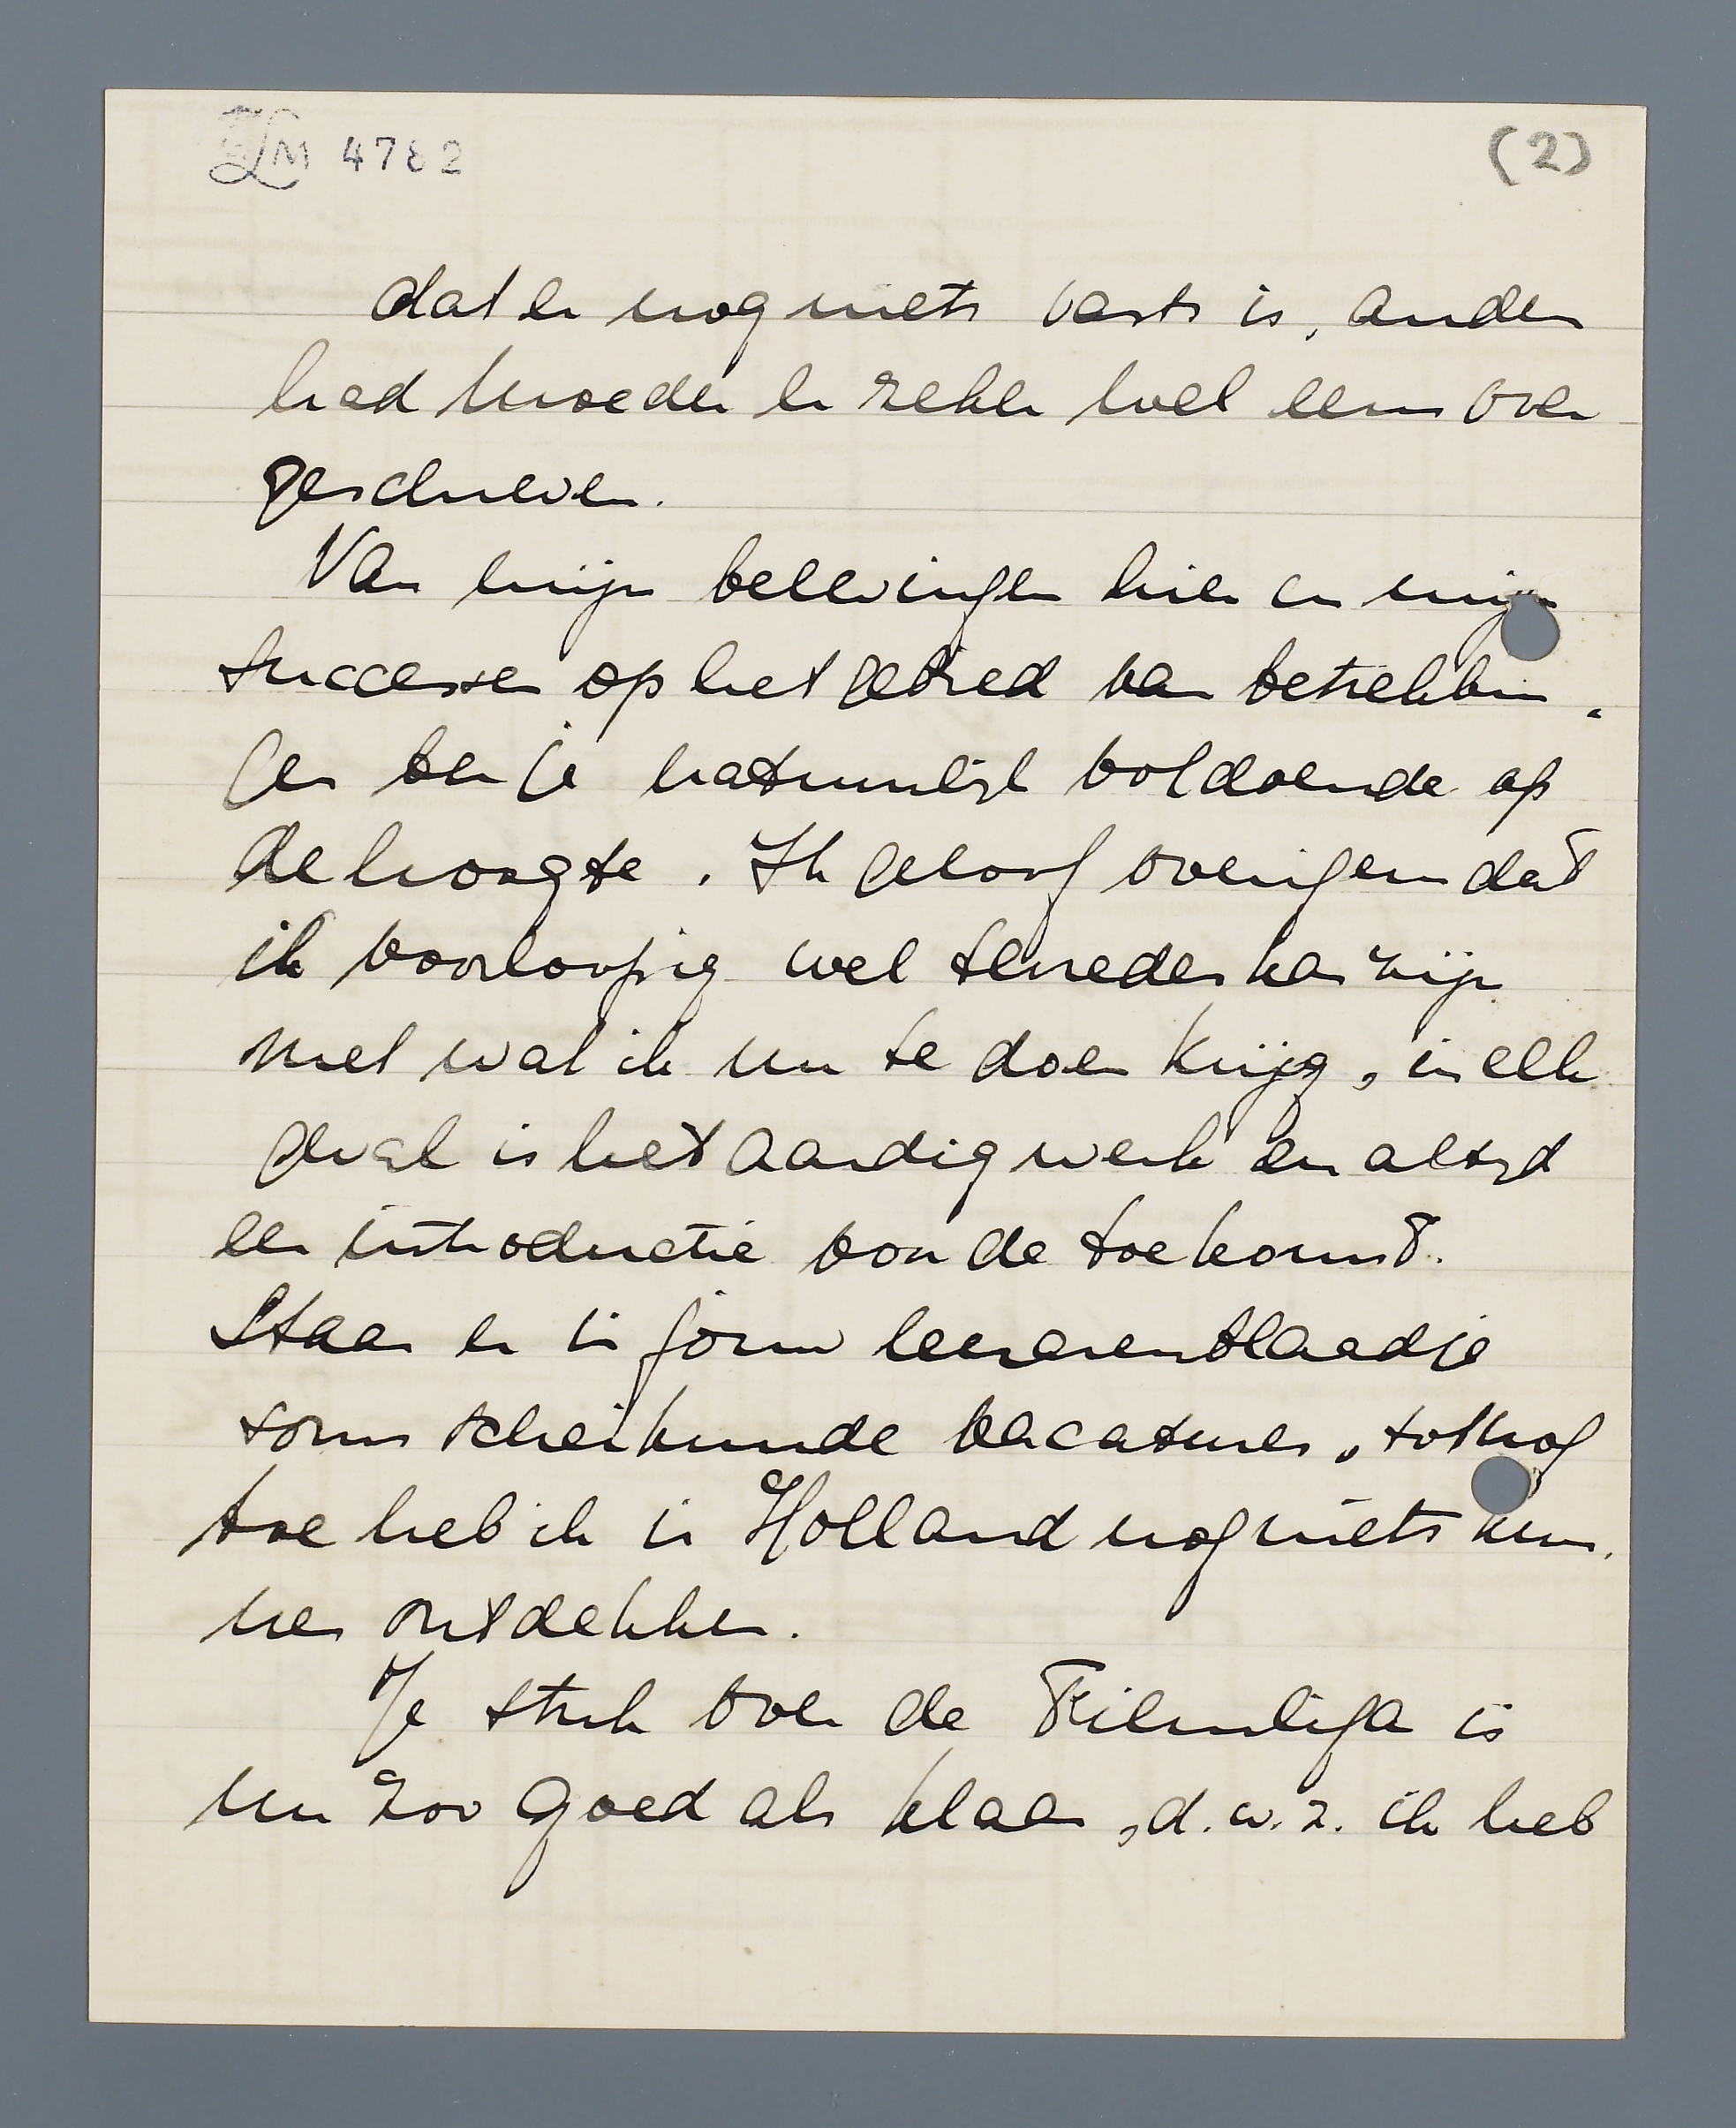 LM 4782
(2)
dat er nog niets vasts is, anders
had Moeder er zeker wel eens over
geschreven.
Van mijn belevingen hier en mijn
successen op het gebied van betrekkin-
gen ben je natuurlijk voldoende op
de hoogte. Ik geloof overigens dat
ik voorloopig wel tevreden kan zijn
met wat ik nu te doen krijg, in elk
geval is het aardig werk en altijd
een introductie voor de toekomst.
Staan er in jouw leerarenblaadje
soms scheikunde vacatures, tot nog
toe heb ik in Holland nog niets kun-
nen ontdekken.
Je stuk over de Filmliga is
nu zoo goed als klaar, d.w.z. ik heb